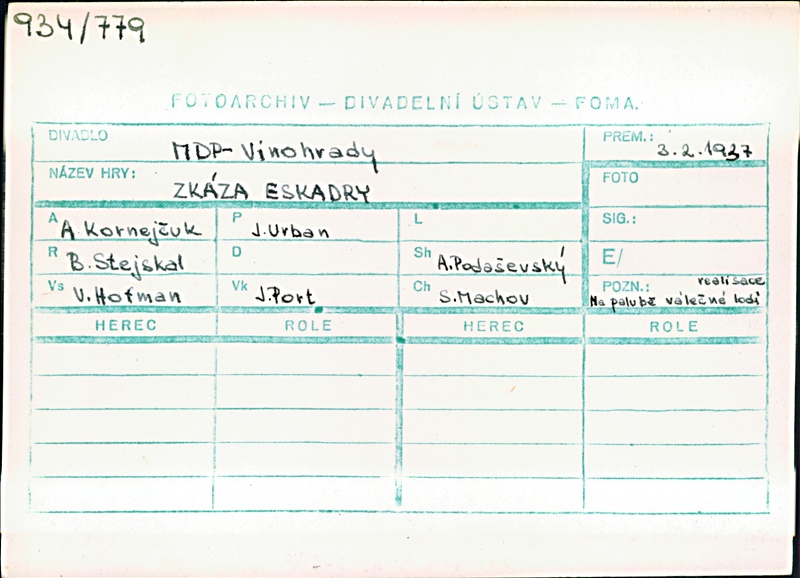 934/779
FOTOARCHIV — DIVADELNÍ ÚSTAV — FOMA.
DIVADLO MDP- Vinohrady PREM.: 3.2.1937
NÁZEV HRY: ZKÁZA ESKADRY FOTO
A A. Kornejčuk P J. Urban L SIG.:
R B. Stejskal D Sh A. Podaševský E/
Vs V. Hofman Vk J. Port Ch S. Machov POZN.: realisace
Na palubě válečné lodi
HEREC ROLE HEREC ROLE